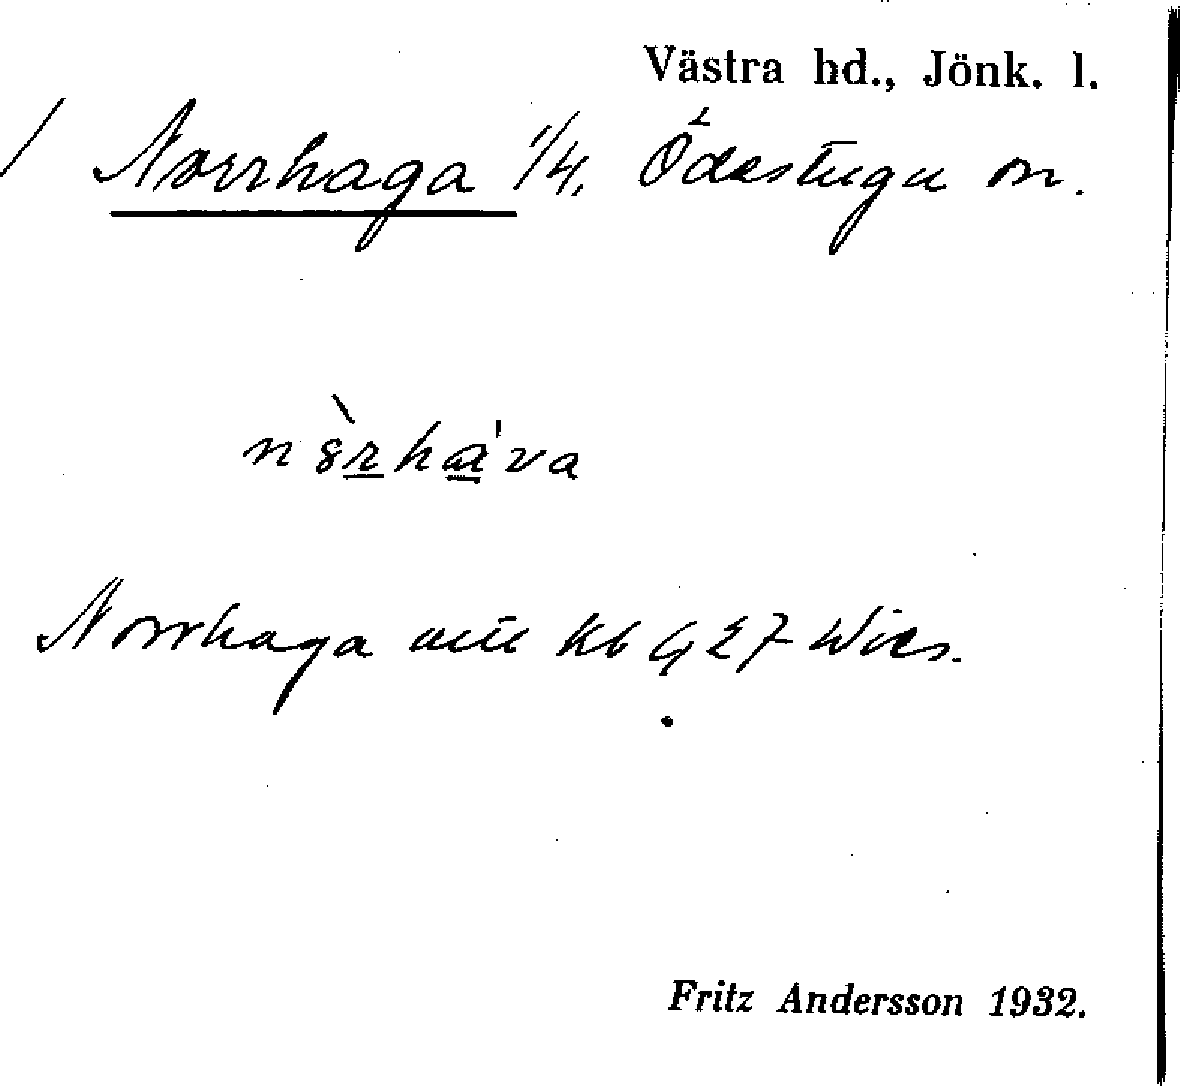 Västra hd., Jönk. l.
/ Norrhaga 1/4, Ödestugu sn.
nø̀rha̱'va
Norrhaga
Fritz Andersson 1932.